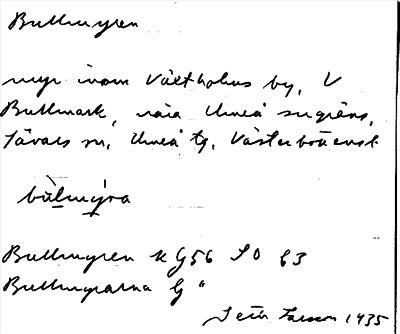 Bullmyren
myr inom Västholms by, V
Bullmark, nära Umeå sngräns,
Sävars sn, Umeå tg, Västerbottensl
bùlmy̆ra
Bullmyren k G56 SO 63
Bullmyrarna G "
Seth Larsson 1935